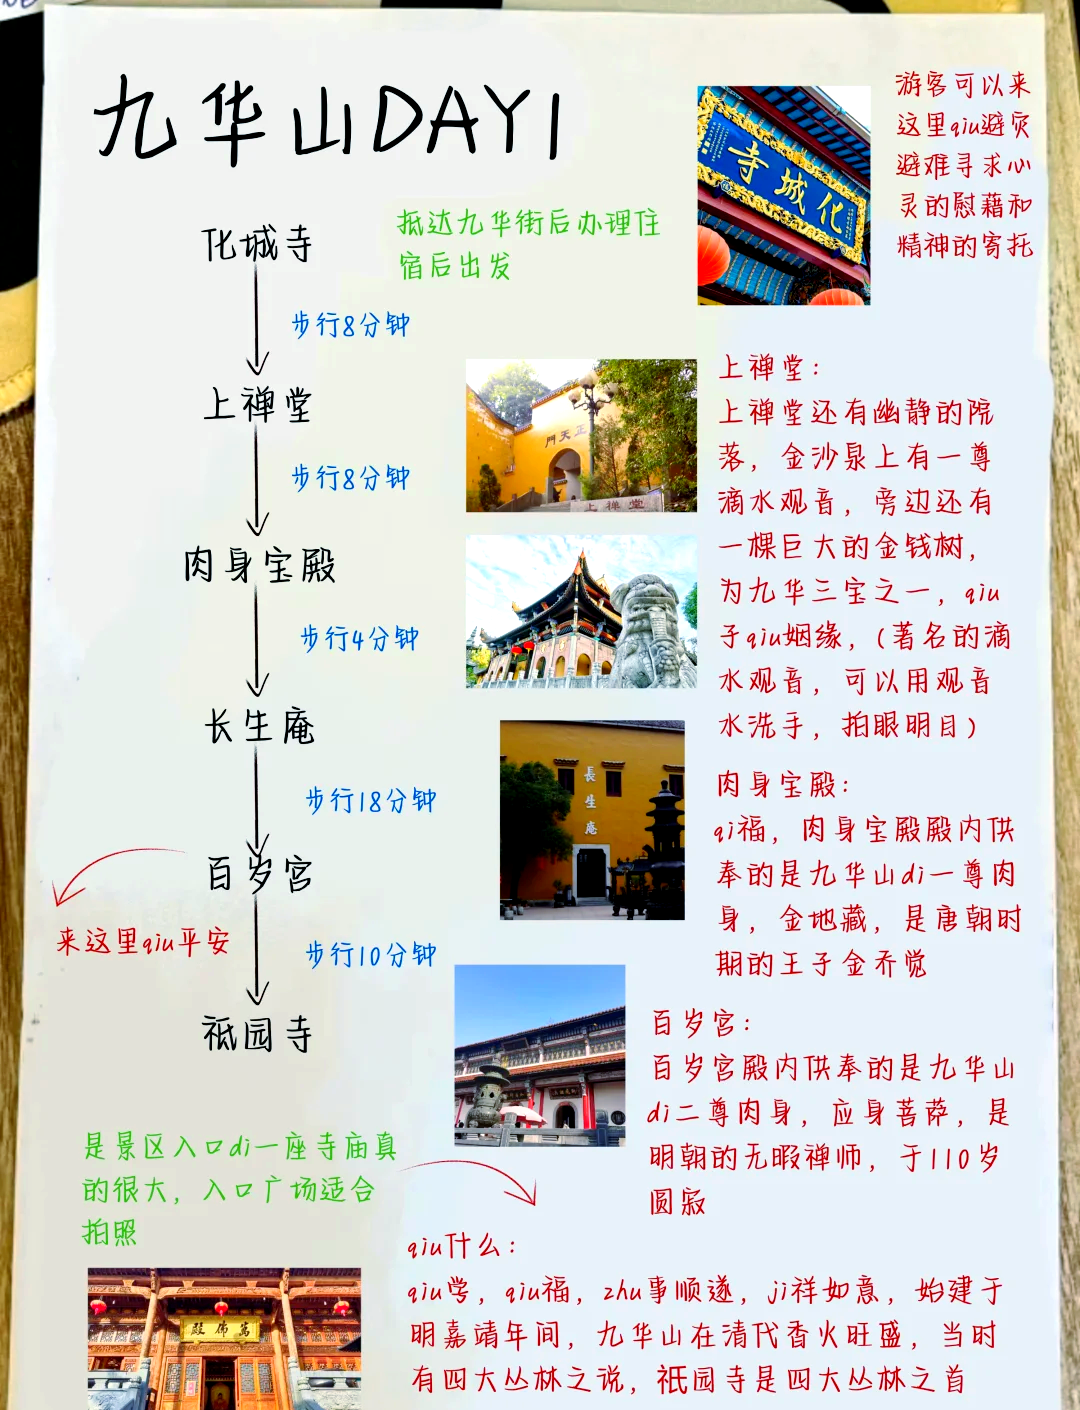 九华山DAY1
化城寺
抵达九华街后办理住
宿后出发
步行8分钟
上禅堂
步行8分钟
肉身宝殿
步行4分钟
长生庵
步行18分钟
百岁宫
来这里qiu平安
步行10分钟
祗园寺
化城寺
游客可以来
这里qiu避灾
避难寻求心
灵的慰藉和
精神的寄托
正天門
上禅堂
上禅堂：
上禅堂还有幽静的院
落，金沙泉上有一尊
滴水观音，旁边还有
一棵巨大的金钱树，
为九华三宝之一，qiu
子qiu姻缘，(著名的滴
水观音，可以用观音
水洗手，拍眼明目)
長生庵
肉身宝殿：
qi福，肉身宝殿殿内供
奉的是九华山di一尊肉
身，金地藏，是唐朝时
期的王子金乔觉
百岁宫：
百岁宫殿内供奉的是九华山
di二尊肉身，应身菩萨，是
明朝的无暇禅师，于110岁
圆寂
是景区入口di一座寺庙真
的很大，入口广场适合
拍照
萬佛殿
qiu什么：
qiu学，qiu福，zhu事顺遂，ji祥如意，始建于
明嘉靖年间，九华山在清代香火旺盛，当时
有四大丛林之说，祇园寺是四大丛林之首